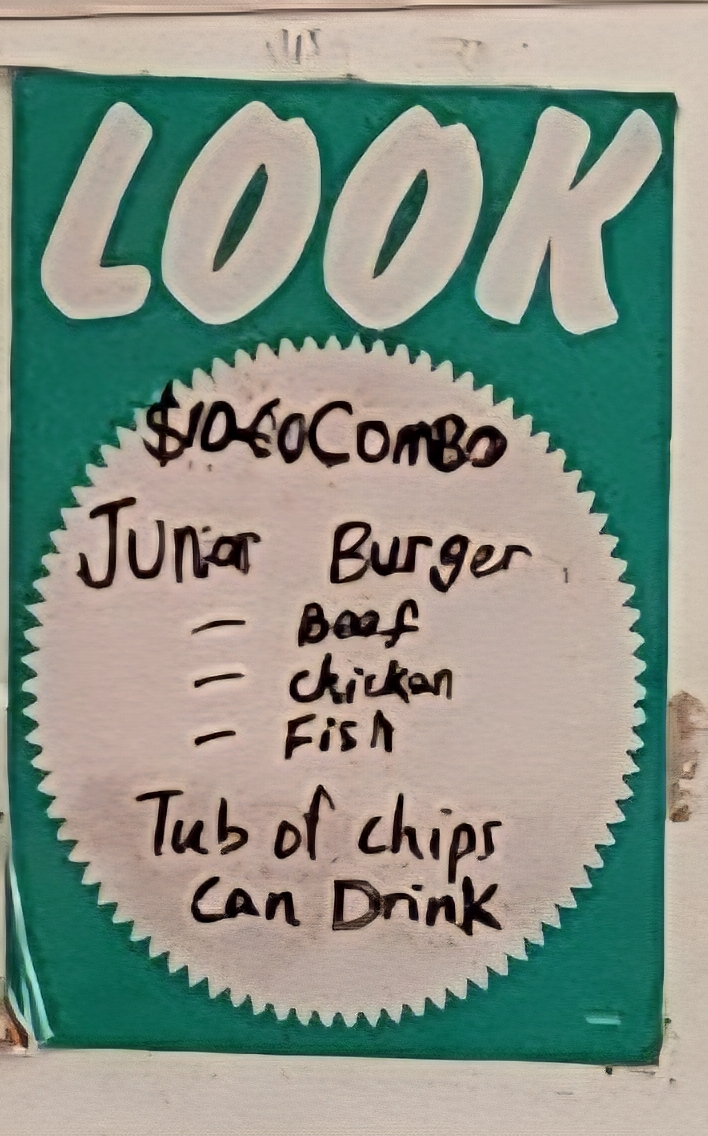 LOOK
Combo
Junior Burger
- Beef
- chicken
- Fish
Tub of chips
Can Drink